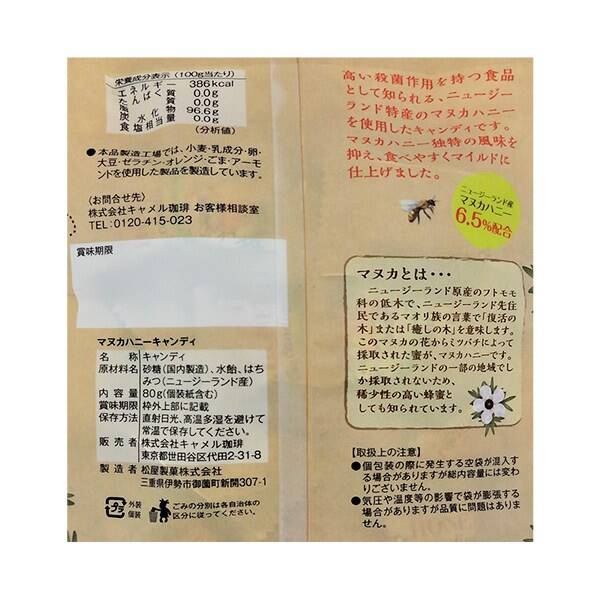 栄養成分表示(100g当たり)
エネルギー 386kcal
たんぱく質 0.0g
脂質 0.0g
炭水化物 96.6g
食塩相当量 0.0g
(分析値)
●本品製造工場では、小麦・乳成分・卵・
大豆・ゼラチン・オレンジ・ごま・アーモ
ンドを使用した製品を製造しています。
〈お問合せ先〉
株式会社キャメル珈琲 お客様相談室
TEL:0120-415-023
賞味期限
マヌカハニーキャンディ
名称 キャンディ
原材料名 砂糖(国内製造)、水飴、はち
みつ(ニュージーランド産)
内容量 80g(個装紙含む)
賞味期限 枠外上部に記載
保存方法 直射日光、高温多湿を避けて
常温で保存してください。
販売者 株式会社キャメル珈琲
東京都世田谷区代田2-31-8
製造者 松屋製菓株式会社
三重県伊勢市御薗町新開307-1
プラ
外装
個装
ごみの分別は各自治体の
区分に従ってください。
高い殺菌作用を持つ食品
として知られる、ニュージー
ランド特産のマヌカハニー
を使用したキャンディです。
マヌカハニー独特の風味を
抑え、食べやすくマイルドに
仕上げました。
ニュージーランド産
マヌカハニー
6.5%配合
マヌカとは・・・
ニュージーランド原産のフトモモ
科の低木で、ニュージーランド先住
民であるマオリ族の言葉で「復活の
木」または「癒しの木」を意味します。
このマヌカの花からミツバチによって
採取された蜜が、マヌカハニーです。
ニュージーランドの一部の地域でし
か採取されないため、
稀少性の高い蜂蜜と
しても知られています。
【取扱上の注意】
●個包装の際に発生する空袋が混入す
る場合がありますが総内容量には変わ
りございません。
●気圧や温度等の影響で袋が膨張する
場合がありますが品質に問題はありま
せん。